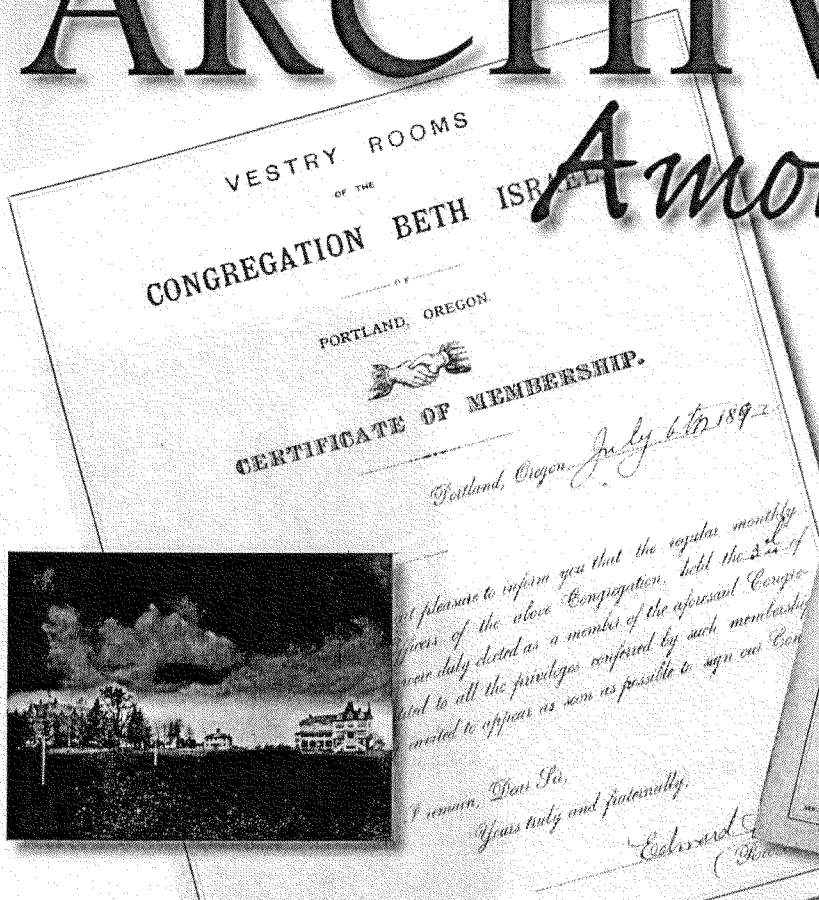 ARCHIV
Amo
VESTRY ROOMS
OF THE
CONGREGATION BETH ISRAEL
OF
PORTLAND, OREGON.
CERTIFICATE OF MEMBERSHIP.
Portland, Oregon, July 6th 189
pleasure to inform you that the regular monthly
of the above Congregation, held the 3d of
were duly elected as a member of the aforesaid Congre-
to all the privileges conferred by such membership
invited to appear as soon as possible to sign our Con
I remain, Dear Sir,
Yours truly and fraternally,
Edward